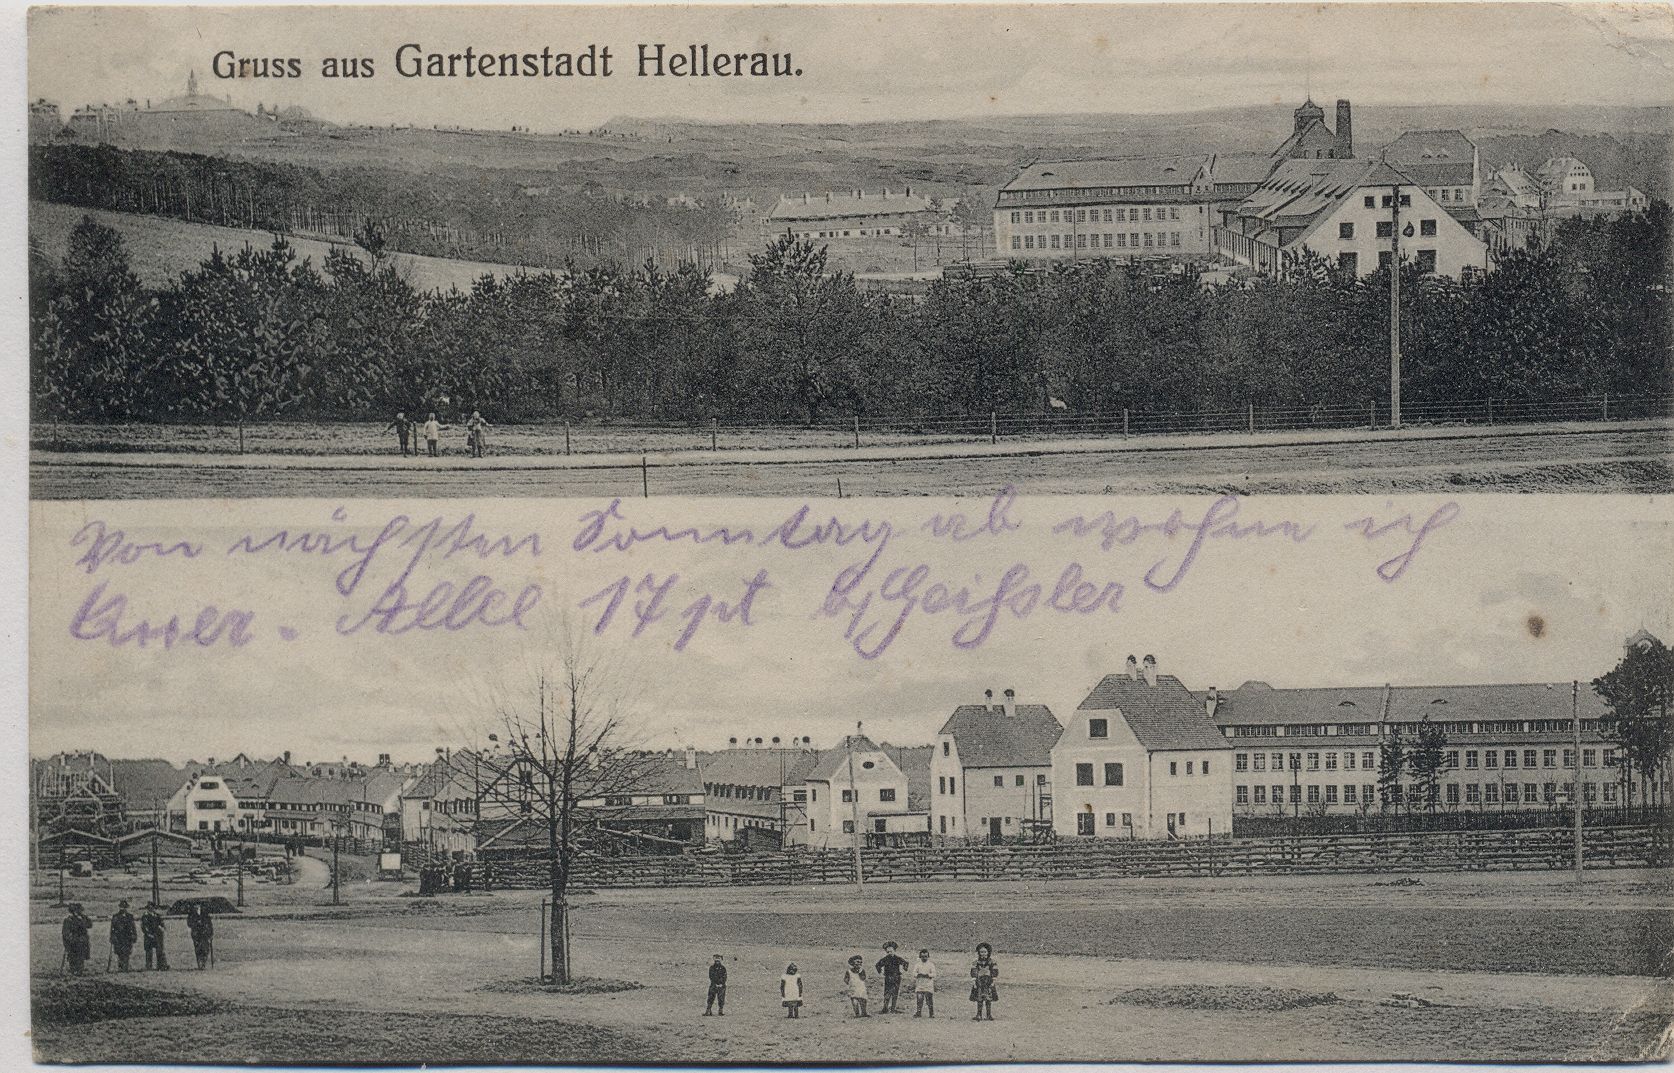 Gruss aus Gartenstadt Hellerau.
Von nächsten Sonntag ab wohne ich
Auer. Allee 17 pt b/Geißler